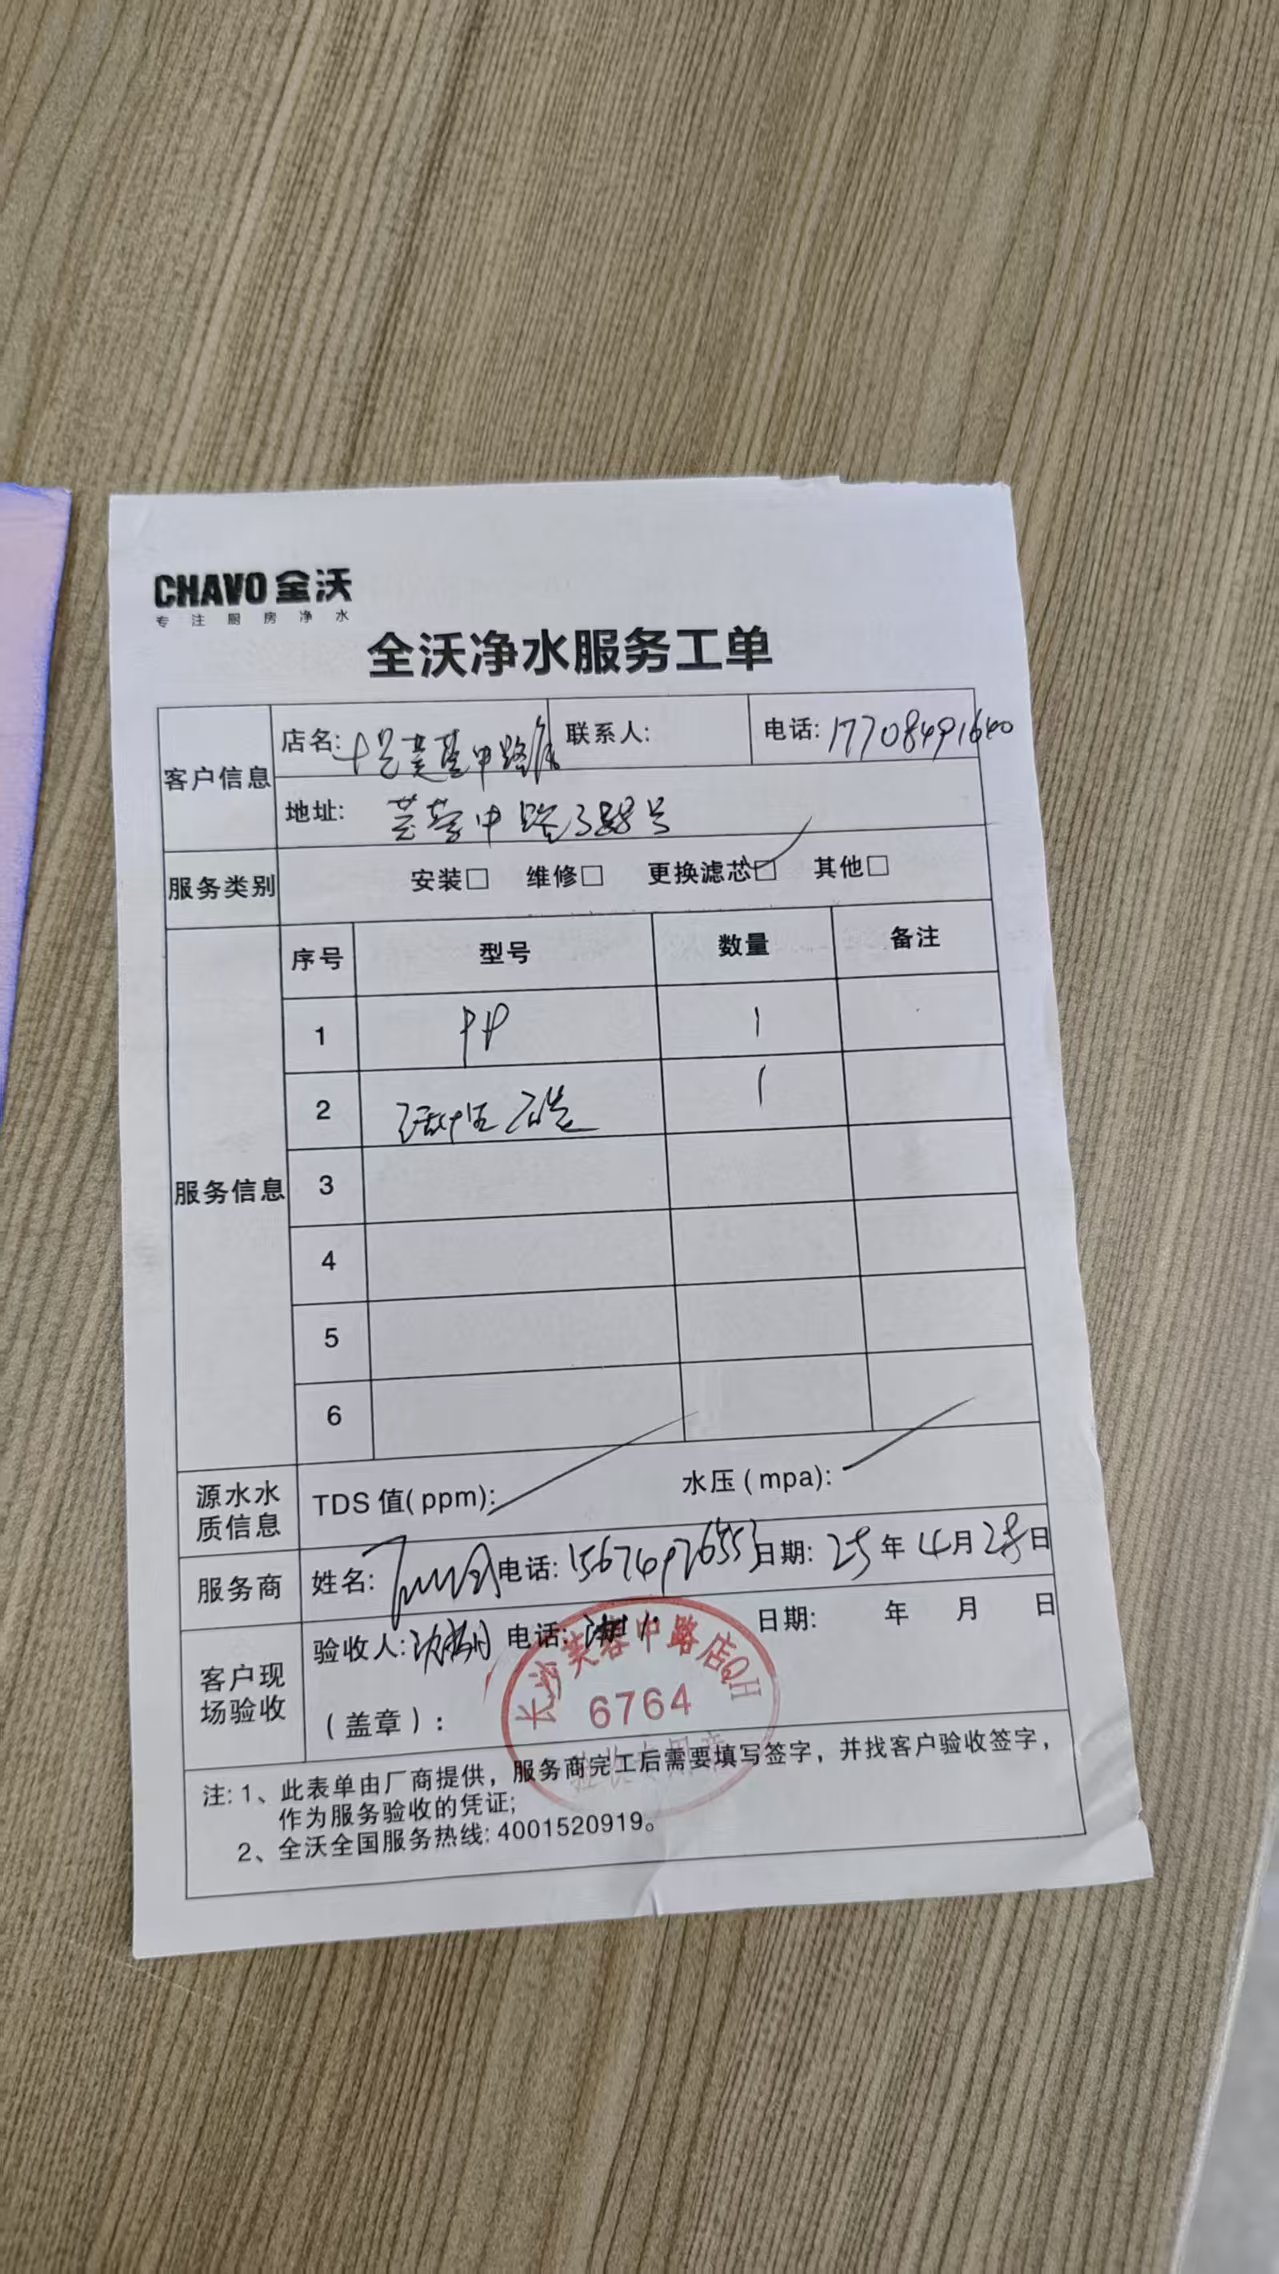 CHAVO 全沃
专注厨房净水
全沃净水服务工单
客户信息 店名: 芙蓉中路店 联系人: 电话: 17708491640
地址: 芙蓉中路388号
服务类别 安装□ 维修□ 更换滤芯□ 其他□
服务信息 序号 型号 数量 备注
1 PP 1
2 活性 1
3
4
5
6
源水水质信息 TDS 值(ppm): 水压(mpa):
服务商 姓名: 电话: 15674926553 日期: 25年4月28日
客户现场验收 验收人: 电话: 日期: 年 月 日
(盖章):
长沙芙蓉中路店QH
6764
验收专用章
注: 1、此表单由厂商提供，服务商完工后需要填写签字，并找客户验收签字，
作为服务验收的凭证;
2、全沃全国服务热线: 4001520919。